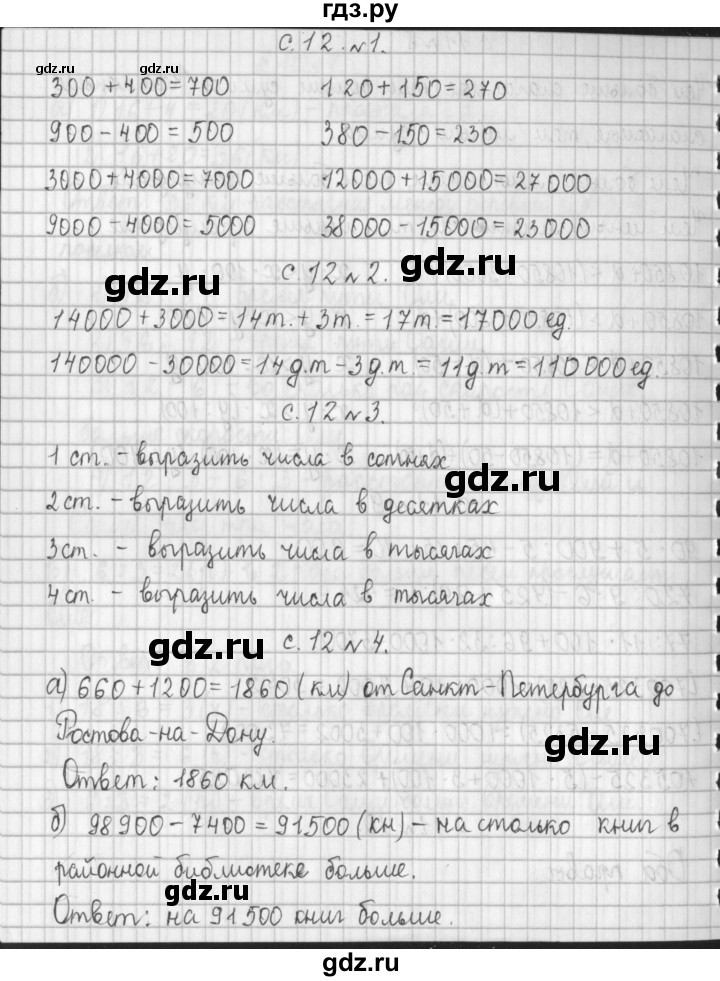 гдз.ру
с. 12. №1.
gdz.ru
gdz.ru
300 + 400 = 700 120 + 150 = 270
900 - 400 = 500 380 - 150 = 230
3000 + 4000 = 7000 12000 + 15000 = 27000
9000 - 4000 = 5000 38000 - 15000 = 23000
gdz.ru
с. 12 №2.
gdz.ru
14000 + 3000 = 14т. + 3т. = 17т. = 17000 ед.
140000 - 30000 = 14д.т - 3д.т. = 11д.т = 110000 ед.
с. 12 №3.
1 ст. - выразить числа в сотнях
gdz.ru
2 ст. - выразить числа в десятках
3 ст. - выразить числа в тысячах
4 ст. - выразить числа в тысячах
gdz.ru
с. 12 №4.
а) 660 + 1200 = 1860 (км) от Санкт-Петербурга до
Ростова-на-Дону.
gdz.ru
Ответ: 1860 км.
б) 98900 - 7400 = 91500 (кн) - на столько книг в
районной библиотеке больше.
gdz.ru
Ответ: на 91500 книг больше.
gdz.ru